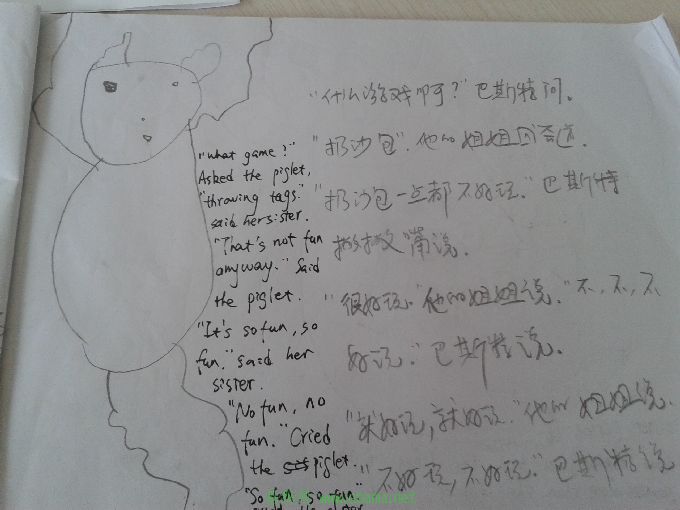 "什么游戏啊?"巴斯特问。
"扔沙包".他的姐姐回答道.
"扔沙包一点都不好玩."巴斯特
撇撇嘴说.
"很好玩."他的姐姐说."不,不,不
好玩."巴斯特说.
"就好玩,就好玩."他的姐姐说.
"不好玩,不好玩."巴斯特说
"what game?"
Asked the piglet,
"throwing tags."
said her sister.
"That's not fun
anyway." Said
the piglet.
"It's so fun, so
fun." said her
sister.
"No fun, no
fun." Cried
the piglet.
"So fun, so fun."